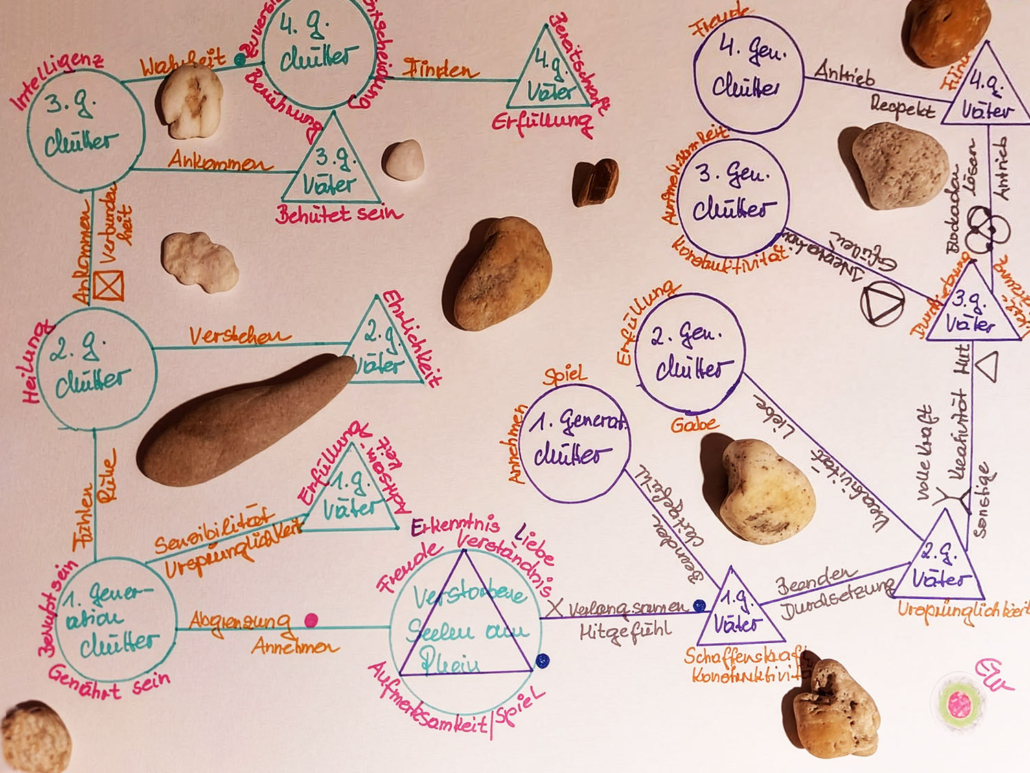 Intelligenz
Wahrheit
3. G.
Mütter
4. G.
Mütter
Entscheidung
Berührung
Finden
4. G.
Väter
Bereitschaft
Erfüllung
Ankommen
3. G.
Väter
Behütet sein
Ankommen
Verbunden
heit
Heilung
2. G.
Mütter
Verstehen
2. G.
Väter
Ehrlichkeit
Fühlen
Ruhe
Sensibilität
Ursprünglichkeit
1. G.
Väter
Erfüllung
Achtsam-
keit
Bewußt sein
1. Gener-
ation
Mütter
Genährt sein
Abgrenzung
Annehmen
Erkenntnis
Liebe
Freude
Verständnis
Verstorbene
Seelen am
Rhein
Aufmerksamkeit/Spiel
Freude
4. Gen.
Mütter
Antrieb
Respekt
4. G.
Väter
Aufmerksamkeit
3. Gen.
Mütter
Konstruktivität
Gefühle
Blockaden
lösen
Antrieb
3. G.
Väter
Erfüllung
2. Gen.
Mütter
Gabe
Liebe
Kreativität
Mut
volle Kraft
Kreativität
sonstige
Spiel
Annehmen
1. Generat.
Mütter
Beenden
2. G.
Väter
Ursprünglichkeit
Beenden
Durchsetzung
1. G.
Väter
Verlangsamen
Mitgefühl
Schaffenskraft
Konstruktivi
EW